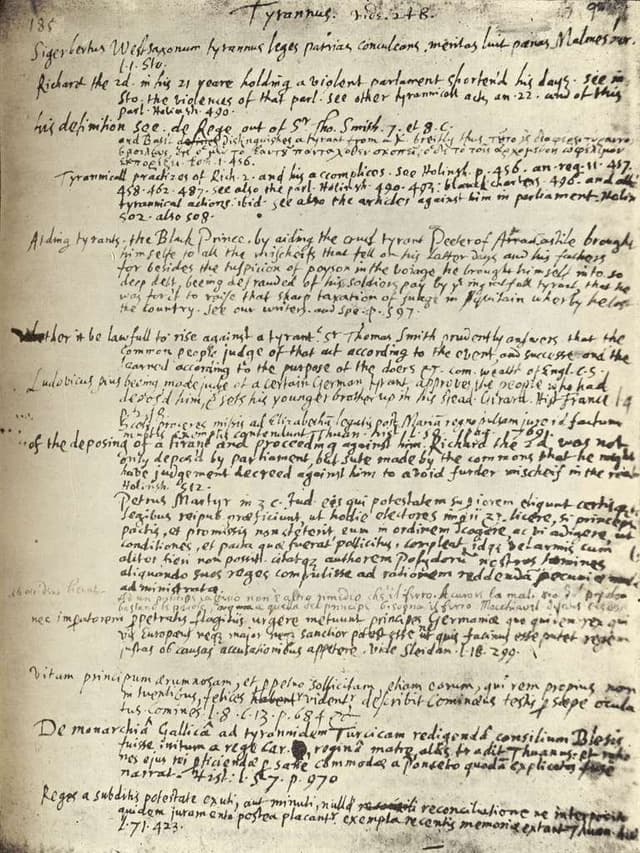 185 Tyrannus. vide. 248.
Sigerbertus West-saxonum tyrannus leges patrias conculcans, meritas luit pænas. Malmesbur.
l. 1. Sto.
Richard the 2d. in his 21 yeare holding a violent parlament shorten'd his days. see in
Sto. the violences of that parl. see other tyrannicall acts, an. 22. and of this
parl. Holinsh. 490.
his definition see. de Rege. out of Sr. Tho. Smith. 7. et 8. C.
and Basil distinguishes a tyrant from a K. breifly thus
tom. 1. 456.
Tyrannicall practizes of Rich. 2. and his accomplices. see Holinsh. p. 456. an. reg. 11. 457.
458. 462. 487. see also the parl. Holinsh. 490. 493. blanck charters. 496. and
tyrannical actions. ibid. see also the articles against him in parliament. Holin
502. also 508.
Aiding tyrants. the Black Prince, by aiding the cruel tyrant Peeter of Castile brought
himselfe to all the mischeifs that fell on his latter days and his fathers
for besides the suspicion of poyson in the voiage he brought himself into so
deep debt, being defrauded of his soldiers pay by that tyrant, that he
was forc't to raise that sharp taxation of fuage in Aquitain wherby he lost
the country. see our writers. and Spe. p. 597.
Whether it be lawfull to rise against a tyrant? Sr Thomas Smith prudently answers that the
common people judge of that act according to the event and successe and the
learned according to the purpose of the doers &c. com. wealth of Engl. C. 5.
Ludovicus pius beeing made judge of a certain German tyrant, approves the people who had
depos'd him, & sets his younger brother up in his stead. Girard. Hist. France l. 4
Scoti proceres missi ad Elizabetham legati post Mariam regno pulsam jure id factum
exemplis contendunt Thuan. hist. l. p. 769.
of the deposing of a tirant and proceeding against him. Richard the 2d was not
only depos'd by parlament, but sute made by the commons that he might
have judgement decreed against him to avoid furder mischeif in the
Holinsh. 512.
Petrus Martyr in 3 c. Jud. eos qui potestatem eligunt certisque
legibus reipub. præficiunt, ut hodie electores imperii &c. licere, si princeps
pactis, et promissis non steterit, eum in ordinem cogere, ac vi adigere, ut
conditiones, et pacta quæ fuerat pollicitus, compleat, idque vel armis cum
aliter fieri non possit. citatque authorem Polydorum nostros homines
aliquando suos reges compulisse ad rationem reddendam pecuniæ male
administratæ.
non è altro rimedio che il ferro.
quella del principe bisogna il ferro. Macchiavel
nec imperatorem perpetratis flagitiis urgere metuunt principes Germaniæ quo quidem rex qui
vis Europæus neque major neque sanctior potest esse ut quis facinus esse putet regem
justas ob causas accusationibus appetere. vide Sleidan. l. 18. 299.
Vitam principum ærumnosam, et perpetuo sollicitam, etiam eorum, qui rem propius non
intuentibus, felices videntur describit Comineus testis sæpe ocula
tus. Comines. l. 6. C. 13. p. 684 &c.
De monarchia Gallica ad tyrannidem Turcicam redigenda consilium Blesis
fuisse initum a rege Car. 9. regina matre, aliis, tradit Thuanus. et ratio
nes ejus rei perficiendæ satis commodæ a Ponceto quodam explicatas fuse
narrat. Hist. l. 57. p. 970
Reges a subditis potestate exuti, aut minuti, nulla reconciliatione ne interposito
quidem juramento postea placantur exempla recentis memoriæ extant Thuan. hist
l. 71. 423.